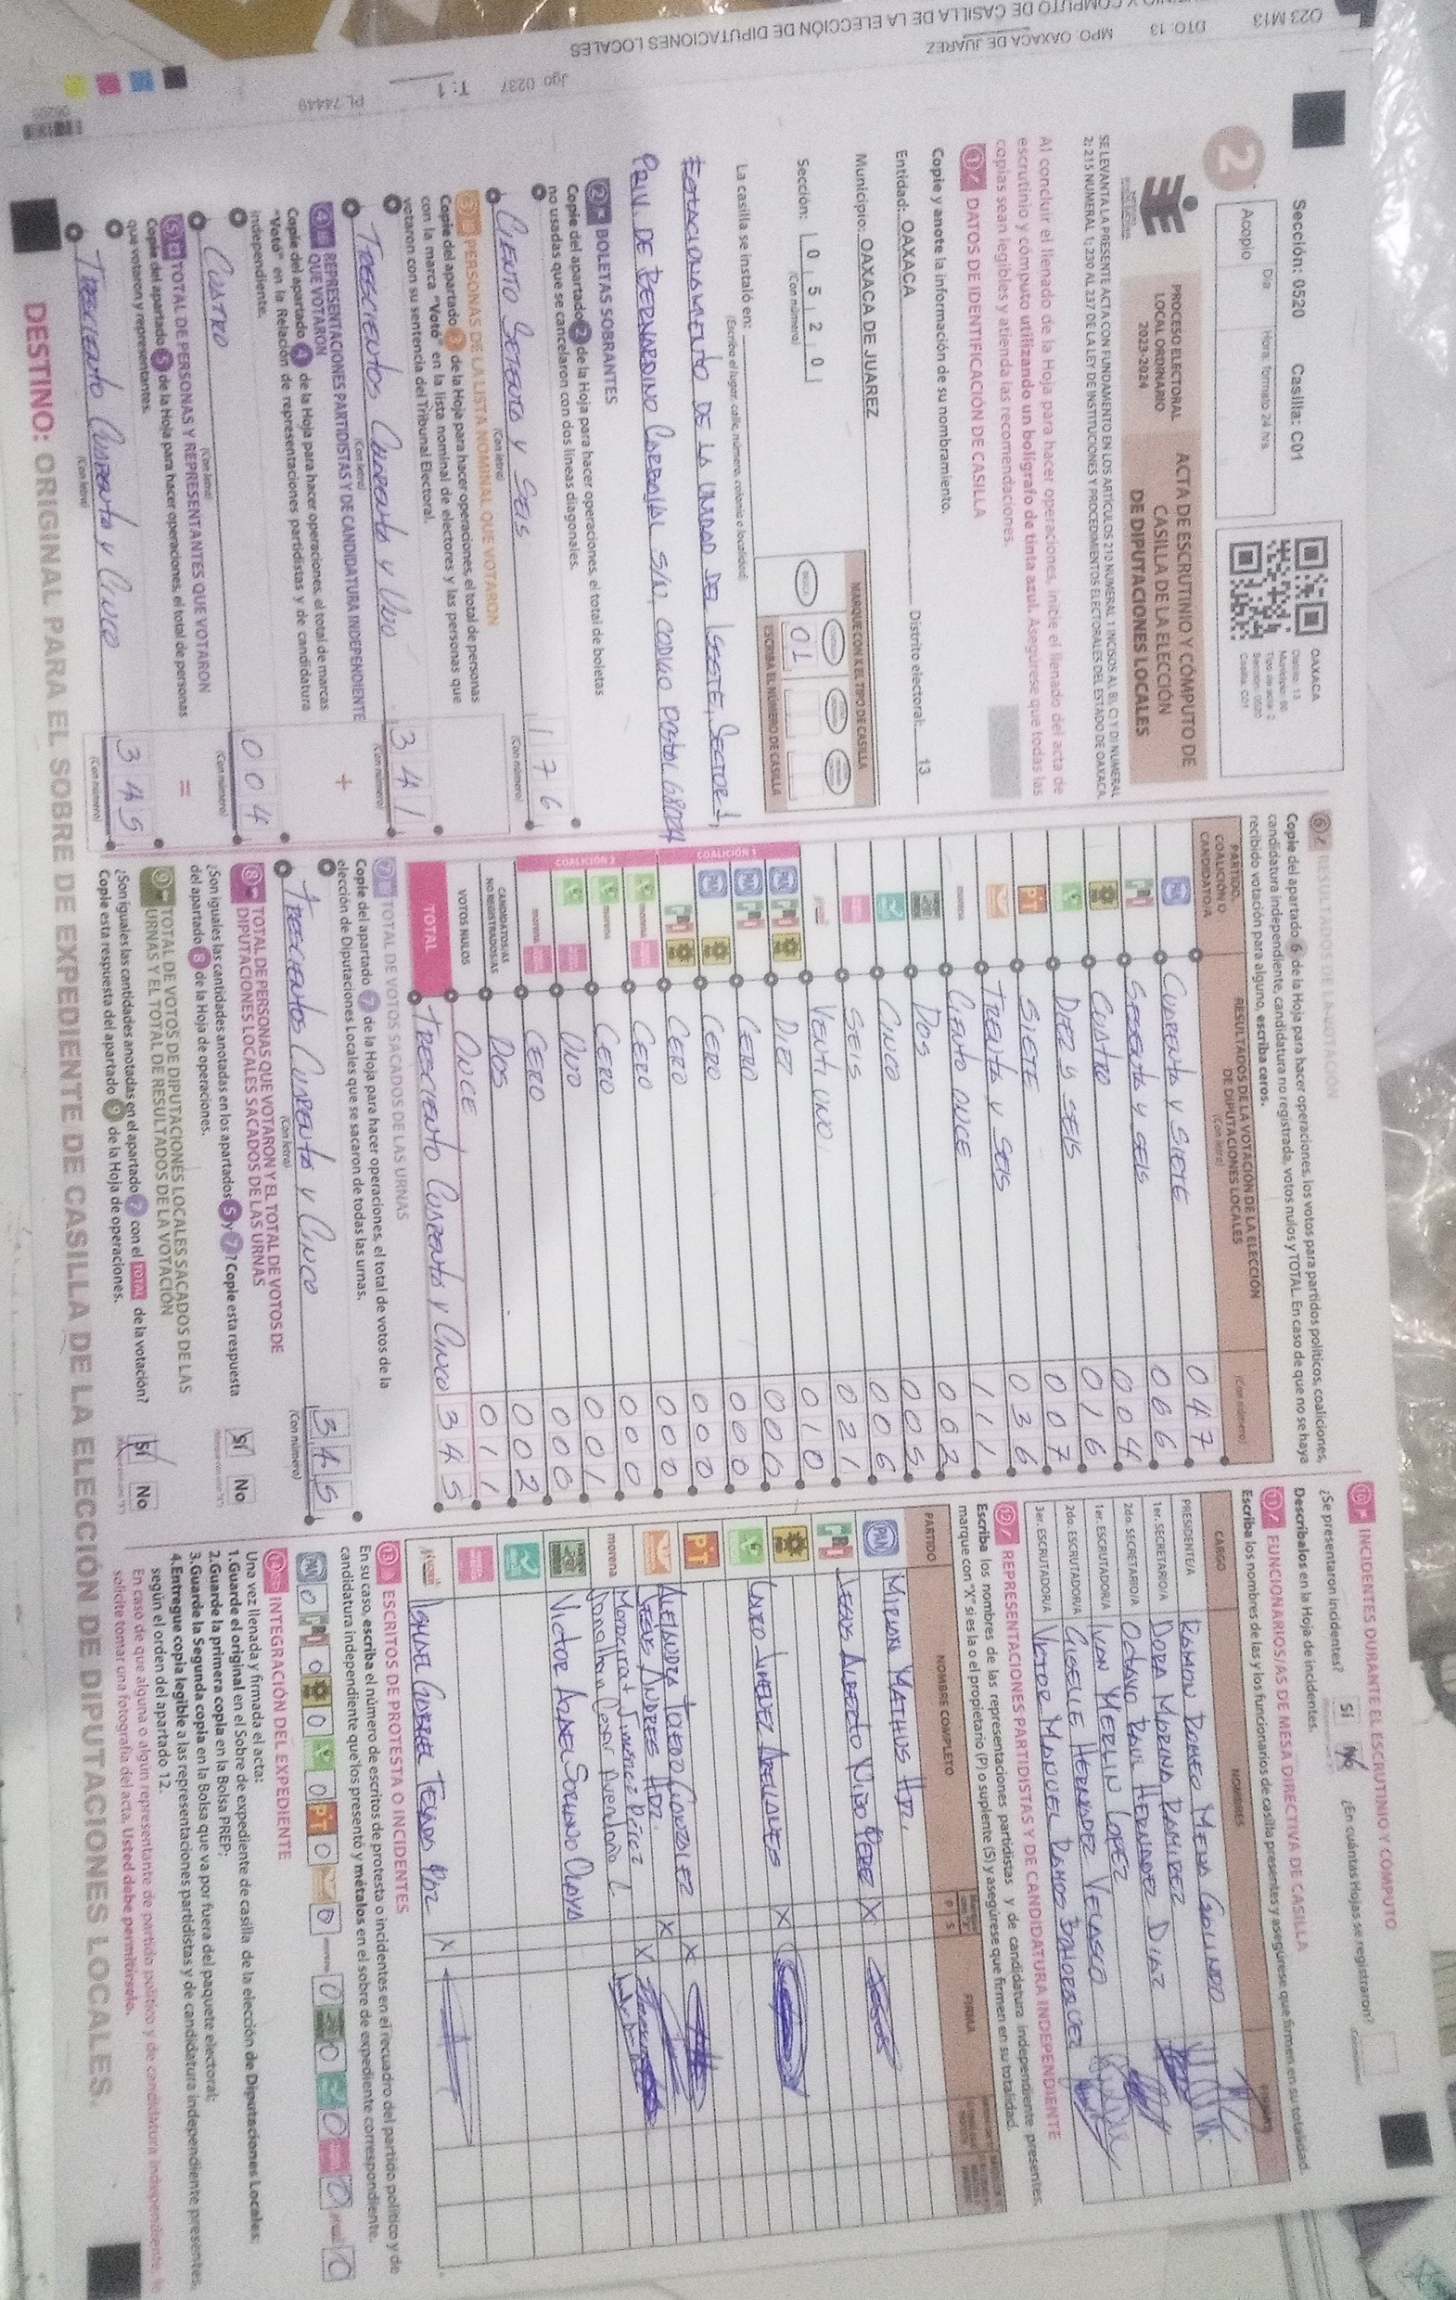 Sección: 0520 Casilla: C01
Día: Hora: formato 24 hrs.
Acopio
2
OAXACA
Distrito: 13
PROCESO ELECTORAL
LOCAL ORDINARIO
2023-2024
ACTA DE ESCRUTINIO Y CÓMPUTO DE
CASILLA DE LA ELECCIÓN
DE DIPUTACIONES LOCALES
SE LEVANTA LA PRESENTE ACTA CON FUNDAMENTO EN LOS ARTÍCULOS 210 NUMERAL 1 INCISOS A), B), C) Y D) NUMERAL
2; 215 NUMERAL 1; 230 AL 237 DE LA LEY DE INSTITUCIONES Y PROCEDIMIENTOS ELECTORALES DEL ESTADO DE OAXACA.
Al concluir el llenado de la Hoja para hacer operaciones, inicie el llenado del acta de
escrutinio y cómputo utilizando un bolígrafo de tinta azul. Asegúrese que todas las
copias sean legibles y atienda las recomendaciones.
1 DATOS DE IDENTIFICACIÓN DE CASILLA
Copie y anote la información de su nombramiento.
Entidad: OAXACA Distrito electoral: 13
Municipio: OAXACA DE JUAREZ
MARQUE CON X EL TIPO DE CASILLA
Sección: 0 5 2 0
(Con número)
01
ESCRIBA EL NÚMERO DE CASILLA
La casilla se instaló en:
(Escriba el lugar, calle, número, colonia o localidad)
ESTACIONAMIENTO DE LA UNIDAD DEL ISSSTE, SECTOR 1,
PRIV. DE BERNARDINO CARBAJAL S/N, CODIGO POSTAL 68024
2 BOLETAS SOBRANTES
Copie del apartado 2 de la Hoja para hacer operaciones, el total de boletas
no usadas que se cancelaron con dos líneas diagonales.
CIENTO SETENTA Y SEIS 176
(Con letra) (Con número)
3 PERSONAS DE LA LISTA NOMINAL QUE VOTARON
Copie del apartado 3 de la Hoja para hacer operaciones, el total de personas
con la marca "Votó" en la lista nominal de electores y las personas que
votaron con su sentencia del Tribunal Electoral.
TRESCIENTOS CUARENTA Y UNO 341
(Con letra) (Con número)
+
4 REPRESENTACIONES PARTIDISTAS Y DE CANDIDATURA INDEPENDIENTE
QUE VOTARON
Copie del apartado 4 de la Hoja para hacer operaciones, el total de marcas
"Votó" en la Relación de representaciones partidistas y de candidatura
independiente.
CUATRO 004
(Con letra) (Con número)
=
5 TOTAL DE PERSONAS Y REPRESENTANTES QUE VOTARON
Copie del apartado 5 de la Hoja para hacer operaciones, el total de personas
que votaron y representantes.
TRESCIENTO CUARENTA Y CINCO 345
(Con letra) (Con número)
6 RESULTADOS DE LA VOTACIÓN
Copie del apartado 6 de la Hoja para hacer operaciones, los votos para partidos políticos, coaliciones,
candidatura independiente, candidatura no registrada, votos nulos y TOTAL. En caso de que no se haya
recibido votación para alguno, escriba ceros.
PARTIDO, COALICIÓN O CANDIDATO/A
RESULTADOS DE LA VOTACIÓN DE LA ELECCIÓN DE DIPUTACIONES LOCALES
(Con letra) (Con número)
PAN CUARENTA Y SIETE 047
PRI SESENTA Y SEIS 066
PRD CUATRO 004
DIEZ Y SEIS 016
PT SIETE 007
TREINTA Y SEIS 036
morena CIENTO ONCE 111
DOS 002
CINCO 005
SEIS 006
VENTI UNO 021
COALICIÓN 1
PAN PRI PRD DIEZ 010
PAN PRI CERO 000
PAN PRD CERO 000
PRI PRD CERO 000
COALICIÓN 2
morena CERO 000
morena CERO 000
UNO 001
morena CERO 000
CANDIDATOS/AS NO REGISTRADOS/AS DOS 002
VOTOS NULOS ONCE 011
TOTAL TRESCIENTO CUARENTA Y CINCO 345
7 TOTAL DE VOTOS SACADOS DE LAS URNAS
Copie del apartado 7 de la Hoja para hacer operaciones, el total de votos de la
elección de Diputaciones Locales que se sacaron de todas las urnas.
TRESCIENTOS CUARENTA Y CINCO 345
(Con letra) (Con número)
8 TOTAL DE PERSONAS QUE VOTARON Y EL TOTAL DE VOTOS DE
DIPUTACIONES LOCALES SACADOS DE LAS URNAS
¿Son iguales las cantidades anotadas en los apartados 5 y 7? Copie esta respuesta
del apartado 8 de la Hoja de operaciones.
Sí No
9 TOTAL DE VOTOS DE DIPUTACIONES LOCALES SACADOS DE LAS
URNAS Y EL TOTAL DE RESULTADOS DE LA VOTACIÓN
¿Son iguales las cantidades anotadas en el apartado 7 con el TOTAL de la votación?
Copie esta respuesta del apartado 9 de la Hoja de operaciones.
Sí No
10 INCIDENTES DURANTE EL ESCRUTINIO Y CÓMPUTO
¿Se presentaron incidentes? Sí No ¿En cuántas Hojas se registraron?
Descríbalos en la Hoja de incidentes.
11 FUNCIONARIOS/AS DE MESA DIRECTIVA DE CASILLA
Escriba los nombres de las y los funcionarios de casilla presentes y asegúrese que firmen en su totalidad.
CARGO NOMBRES FIRMAS
PRESIDENTE/A RAMON ROMEO MENA GALINDO
1er. SECRETARIO/A DORA MARINA RAMIREZ
2do. SECRETARIO/A OCTAVIO RAUL HERNANDEZ DIAZ
1er. ESCRUTADOR/A IVON MERLIN LOPEZ
2do. ESCRUTADOR/A GISELLE HERNANDEZ VELASCO
3er. ESCRUTADOR/A VICTOR MANUEL RAMOS BOHORQUEZ
12 REPRESENTACIONES PARTIDISTAS Y DE CANDIDATURA INDEPENDIENTE
Escriba los nombres de las representaciones partidistas y de candidatura independiente presentes,
marque con "X" si es la o el propietario (P) o suplente (S) y asegúrese que firmen en su totalidad.
PARTIDO NOMBRE COMPLETO P S FIRMA
PAN MIRIAN MATHUS HDZ.
PRI JESUS ALBERTO NIBO PEREZ X
PRD LAURO JIMENEZ ARELLANES X
PT ALEJANDRA TOLEDO GONZALEZ X
JESUS ANDRES HDZ. X
morena Jonathan Cesar Avendaño L. X
VICTOR ASAEL SORIANO OLAYA
ISMAEL GABRIEL TEJADA PAZ X
13 ESCRITOS DE PROTESTA O INCIDENTES
En su caso, escriba el número de escritos de protesta o incidentes en el recuadro del partido político y de
candidatura independiente que los presentó y métalos en el sobre de expediente correspondiente.
PAN 0 PRI 0 0 0 PT 0 0 morena 0 0 0 0 0
14 INTEGRACIÓN DEL EXPEDIENTE
Una vez llenada y firmada el acta:
1.Guarde el original en el Sobre de expediente de casilla de la elección de Diputaciones Locales;
2.Guarde la primera copia en la Bolsa PREP;
3.Guarde la Segunda copia en la Bolsa que va por fuera del paquete electoral;
4.Entregue copia legible a las representaciones partidistas y de candidatura independiente presentes,
según el orden del apartado 12.
En caso de que alguna o algún representante de partido político y de candidatura independiente, le
solicite tomar una fotografía del acta, Usted debe permitírselo.
DESTINO: ORIGINAL PARA EL SOBRE DE EXPEDIENTE DE CASILLA DE LA ELECCIÓN DE DIPUTACIONES LOCALES.
O23 M13 DTO. 13 MPO. OAXACA DE JUAREZ
CÓMPUTO DE CASILLA DE LA ELECCIÓN DE DIPUTACIONES LOCALES
Jgo 0237 T: 1 PL 74449